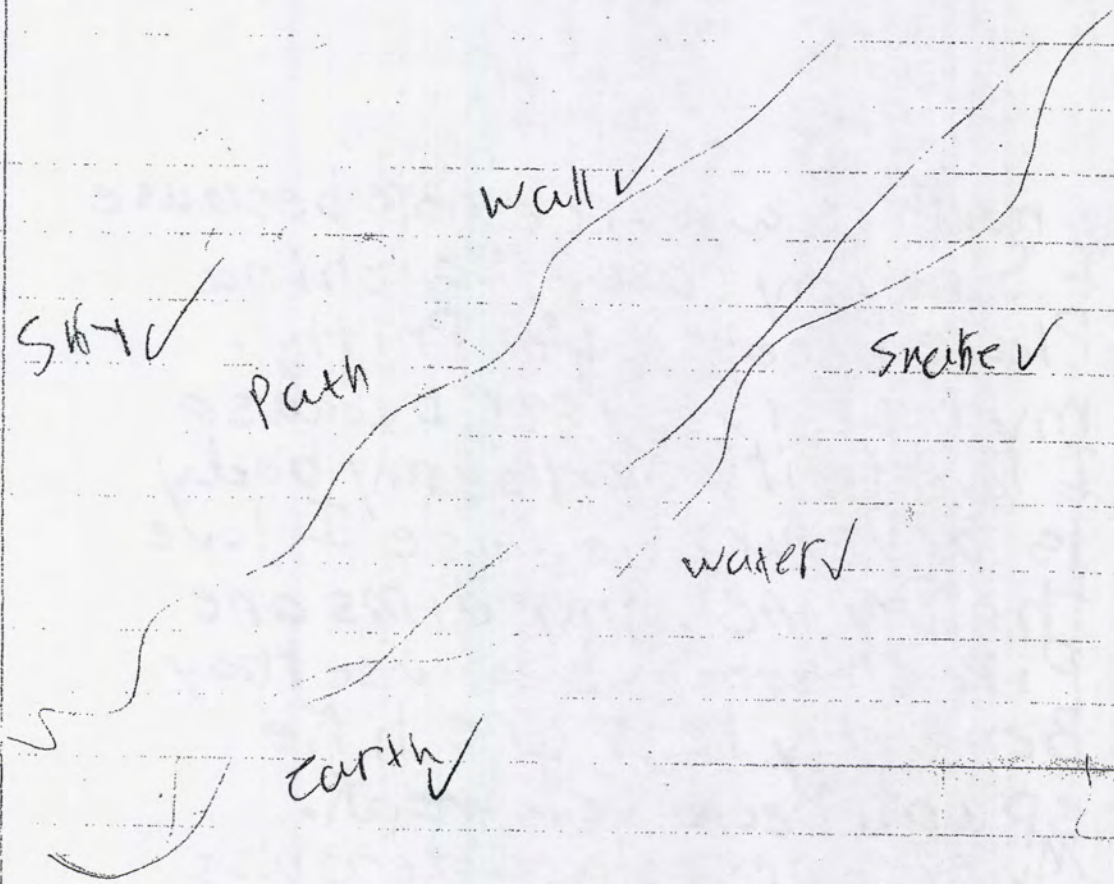 Wall ✓
Sky ✓
Path
Snake ✓
water ✓
Earth ✓